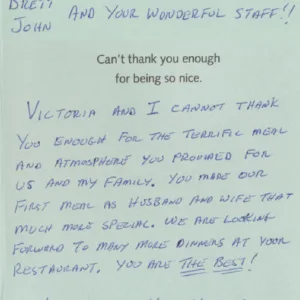 BRETT
JOHN AND YOUR WONDERFUL STAFF!!
Can't thank you enough
for being so nice.
VICTORIA AND I CANNOT THANK
YOU ENOUGH FOR THE TERRIFIC MEAL
AND ATMOSPHERE YOU PROVIDED FOR
US AND MY FAMILY. YOU MADE OUR
FIRST MEAL AS HUSBAND AND WIFE THAT
MUCH MORE SPECIAL. WE ARE LOOKING
FORWARD TO MANY MORE DINNERS AT YOUR
RESTAURANT. YOU ARE THE BEST!